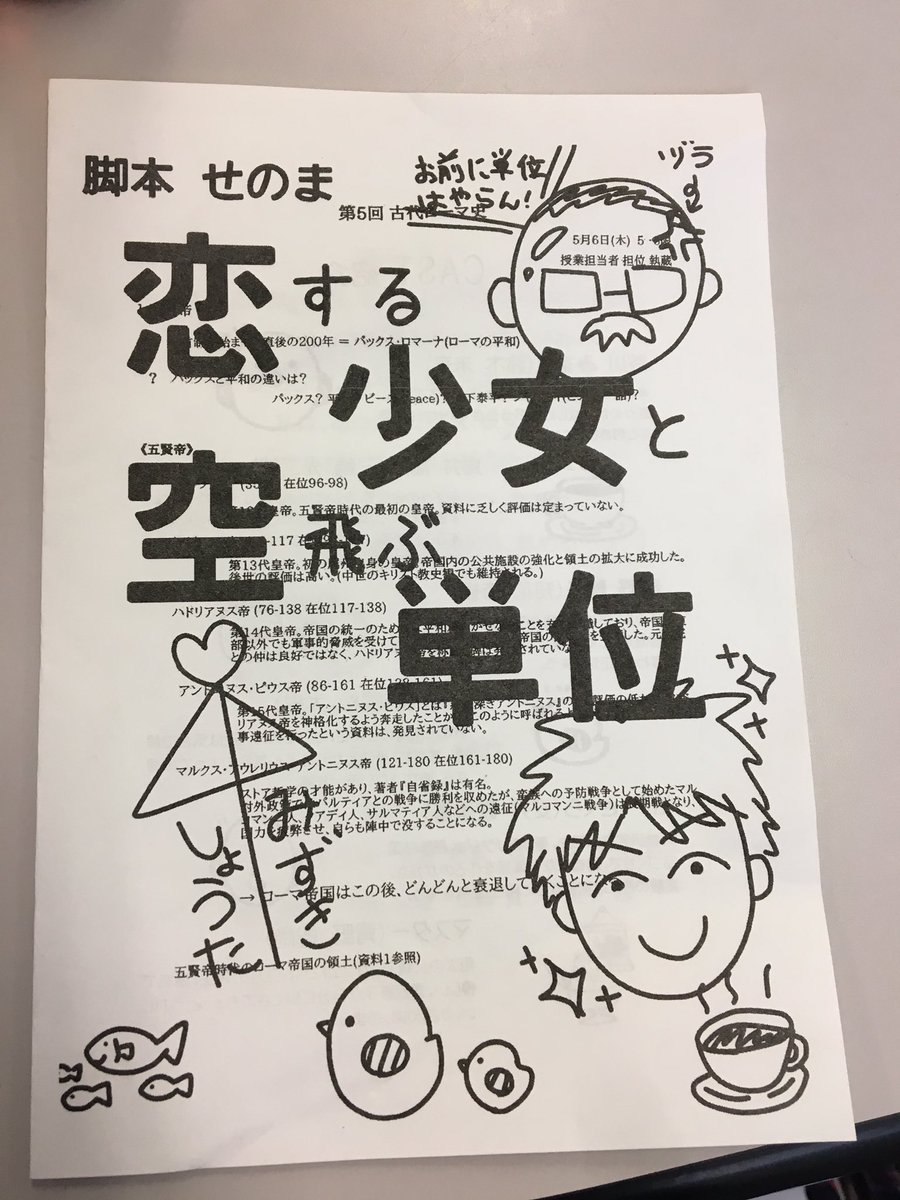 脚本 せのま
お前に単位
はやらん!
ヅラ
第5回 古代ローマ史
5月6日(木) 5
授業担当者 担位 執蔵
恋する
直後の200年 = パックス・ロマーナ(ローマの平和)
? パックスと平和の違いは?
パックス? 平
少女と
《五賢帝》
在位96-98)
皇帝。五賢帝時代の最初の皇帝。資料に乏しく評価は定まっていない。
空飛ぶ
第13代皇帝。初の
身の皇帝。帝国内の公共施設の強化と領土の拡大に成功した。
後世の評価は高い。(中世のキリスト教史観でも維持される。)
単位
ハドリアヌス帝 (76-138 在位117-138)
第14代皇帝。帝国の統一のため
部以外でも軍事的脅威を受けて
との仲は良好ではなく、ハドリアヌ
アントニヌス・ピウス帝 (86-161 在位138-161)
第15代皇帝。「アントニヌス・ピウス」とは『
リアヌス帝を神格化するよう奔走したことが
このように呼ばれる
事遠征を行ったという資料は、発見されていない。
マルクス・アウレリウス・アントニヌス帝 (121-180 在位161-180)
ストア哲学の才能があり、著者『自省録』は有名。
対外政策で
パルティアとの戦争に勝利を収めたが、蛮族への予防戦争として始めたマル
コマンニ人、
アディ人、サルマティア人などへの遠征(マルコマンニ戦争)は長期戦となり、
国力を疲弊させ、自らも陣中で没することになる。
みずき
しょうた
→ ローマ帝国はこの後、どんどんと衰退して
五賢帝時代のローマ帝国の領土(資料1参照)